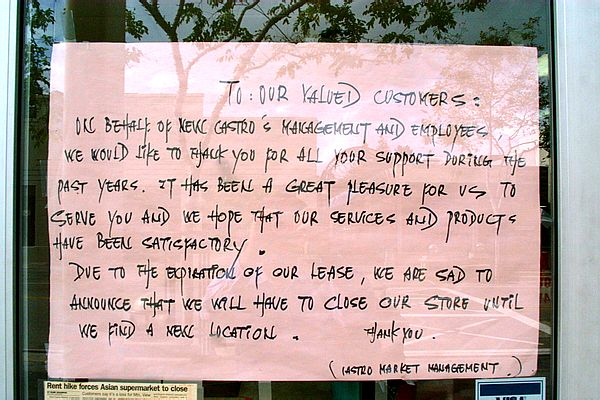 TO: OUR VALUED CUSTOMERS:
ON BEHALF OF NEW CASTRO'S MANAGEMENT AND EMPLOYEES,
WE WOULD LIKE TO THANK YOU FOR ALL YOUR SUPPORT DURING THE
PAST YEARS. IT HAS BEEN A GREAT PLEASURE FOR US TO
SERVE YOU AND WE HOPE THAT OUR SERVICES AND PRODUCTS
HAVE BEEN SATISFACTORY.
DUE TO THE EXPIRATION OF OUR LEASE, WE ARE SAD TO
ANNOUNCE THAT WE WILL HAVE TO CLOSE OUR STORE UNTIL
WE FIND A NEW LOCATION. THANK YOU.
(CASTRO MARKET MANAGEMENT.)
Rent hike forces Asian supermarket to close
Customers say it's a loss for Mtn. View
VISA